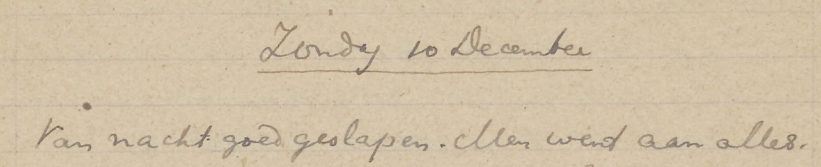 Zondag 10 December
Van nacht goed geslapen. Men went aan alles.